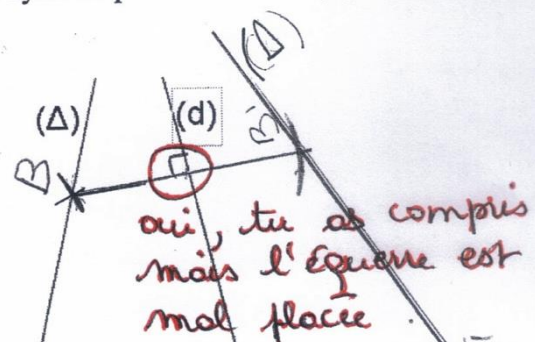 (Δ)
(Δ)
(d)
B
B'
oui, tu as compris
mais l'équerre est
mal placée